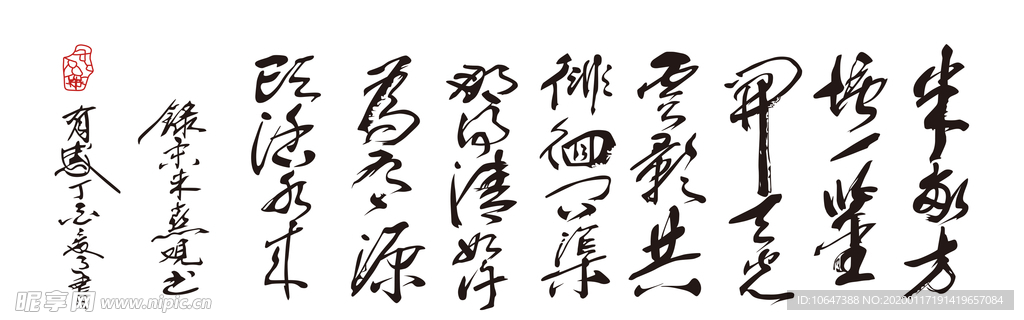 半畝方
塘一鑒
開天光
雲影共
徘徊问渠
那得清如许
為有源
頭活水来
錄宋朱熹观书
有感丁志書
昵享网 www.nipic.cn
ID:10647388 NO:20200117191419657084